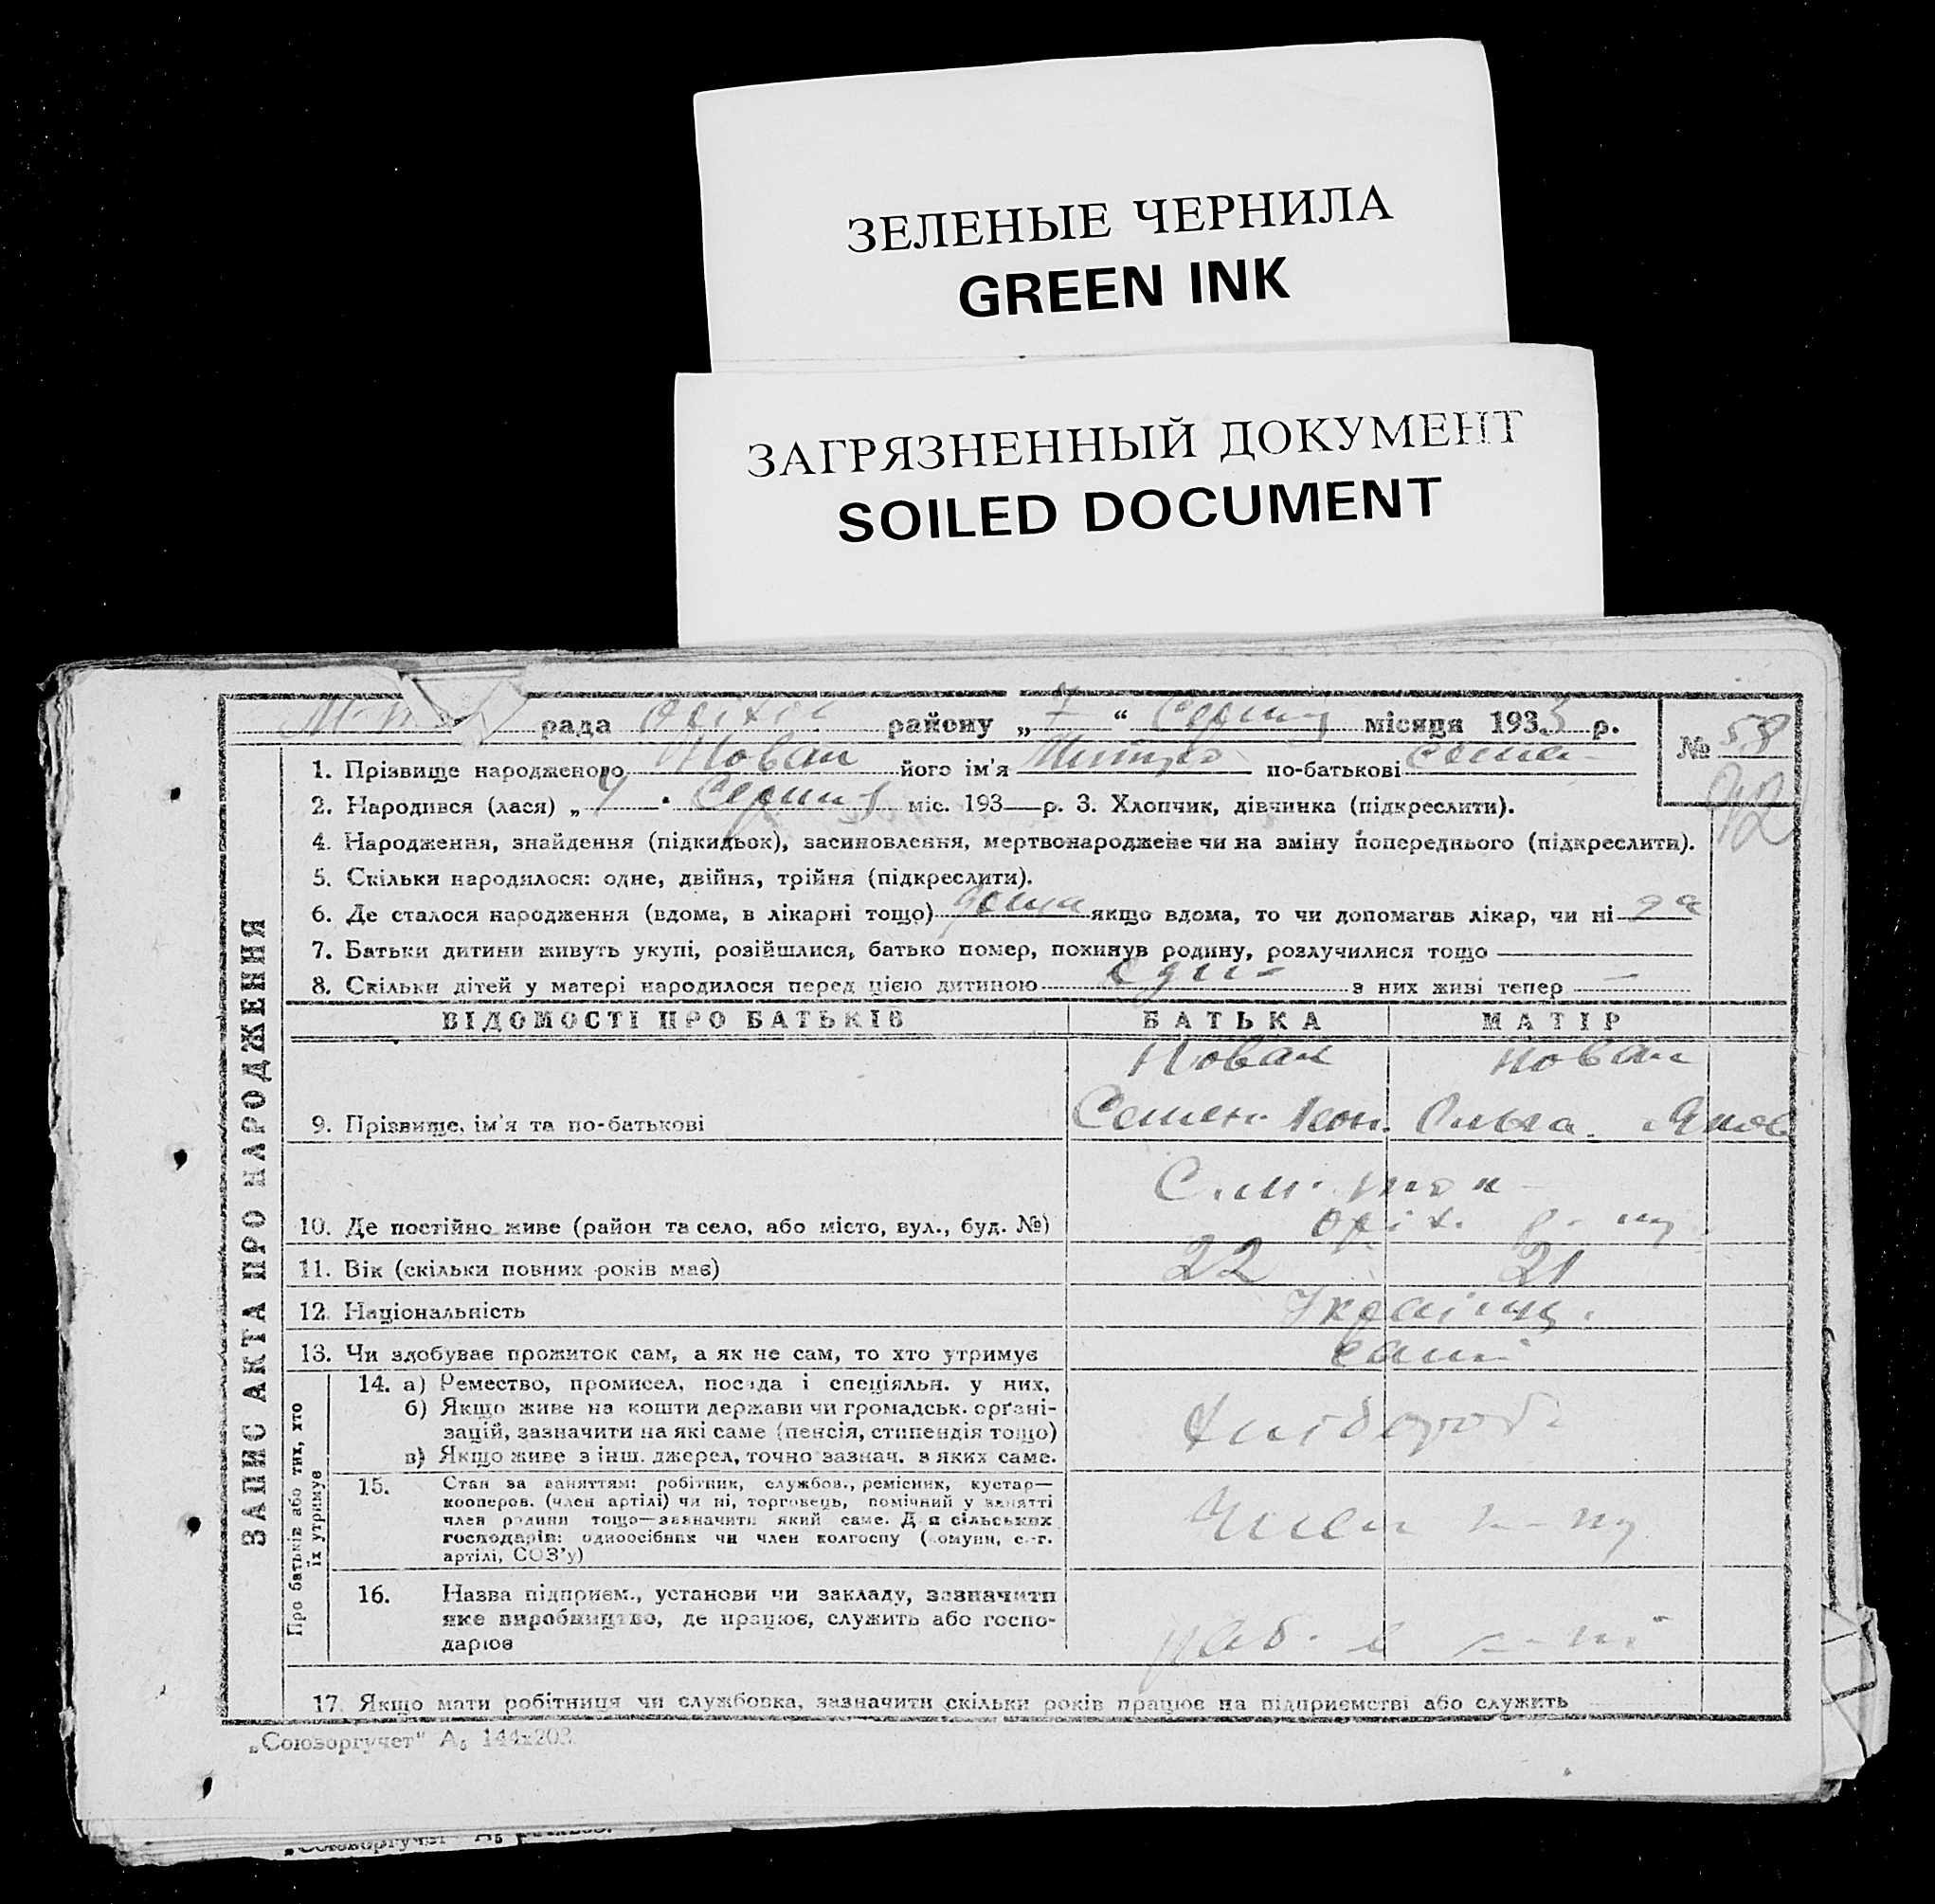 ЗЕЛЕНЫЕ ЧЕРНИЛА
GREEN INK
ЗАГРЯЗНЕННЫЙ ДОКУМЕНТ
SOILED DOCUMENT
рада району „7“ Серпня місяця 1933 р.
№ 58
92
1. Прізвище народженого Новак його ім'я по-батькові Семен
2. Народився (лася) „ Серпня міс. 193—р. 3. Хлопчик, дівчинка (підкреслити).
4. Народження, знайдення (підкидьок), засиновлення, мертвонароджене чи на зміну попереднього (підкреслити).
5. Скільки народилося: одне, двійня, трійня (підкреслити).
6. Де сталося народження (вдома, в лікарні тощо) дома якщо вдома, то чи допомагав лікар, чи ні да
7. Батьки дитини живуть укупі, розійшлися, батько помер, покинув родину, розлучилися тощо —
8. Скільки дітей у матері народилося перед цією дитиною з них живі тепер —
ЗАПИС АКТА ПРО НАРОДЖЕННЯ
ВІДОМОСТІ ПРО БАТЬКІВ БАТЬКА МАТІР
Новак Новак
9. Прізвище, ім'я та по-батькові Семен Кон. Ольга Яков
10. Де постійно живе (район та село, або місто, вул., буд. №) Оріх. р-ну
11. Вік (скільки повних років має) 22 21
12. Національність Українц.
13. Чи здобуває прожиток сам, а як не сам, то хто утримує самі
Про батьків або тих, хто
їх утримує
14. а) Ремество, промисел, посада і спеціяльн. у них.
б) Якщо живе на кошти держави чи громадськ. орґані-
зацій, зазначити на які саме (пенсія, стипендія тощо)
в) Якщо живе з інш. джерел, точно зазнач. з яких саме.
Хлібороб
15. Стан за заняттям: робітник, службов., ремісник, кустар—
кооперов. (член артілі) чи ні, торговець, помічний у занятті
член родини тощо—зазначити який саме. Для сільських
господарів: одноосібник чи член колгоспу (комуни, с.-г.
артілі, СОЗ'у)
Член к-пу
16. Назва підприєм., установи чи закладу, зазначити
яке виробництво, де працює, служить або госпо-
дарює
раб. в к-пі
17. Якщо мати робітниця чи службовка, зазначити скільки років працює на підприємстві або служить
„Союзоргучет“ А₅ 144х203